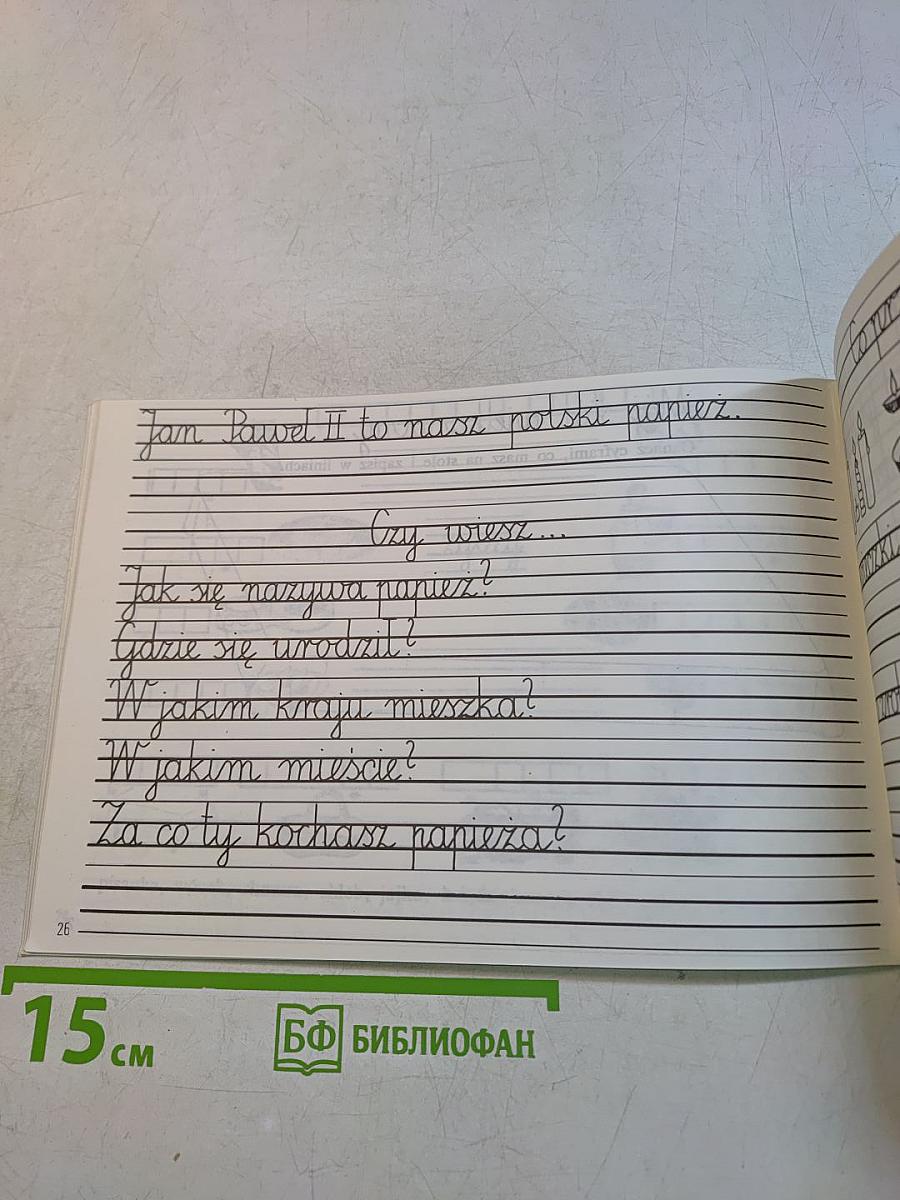 Jan Paweł II to nasz polski papież.
Czy wiesz...
Jak się nazywa papież?
Gdzie się urodził?
W jakim kraju mieszka?
W jakim mieście?
Za co ty kochasz papieża?
26
15 см
БФ БИБЛИОФАН